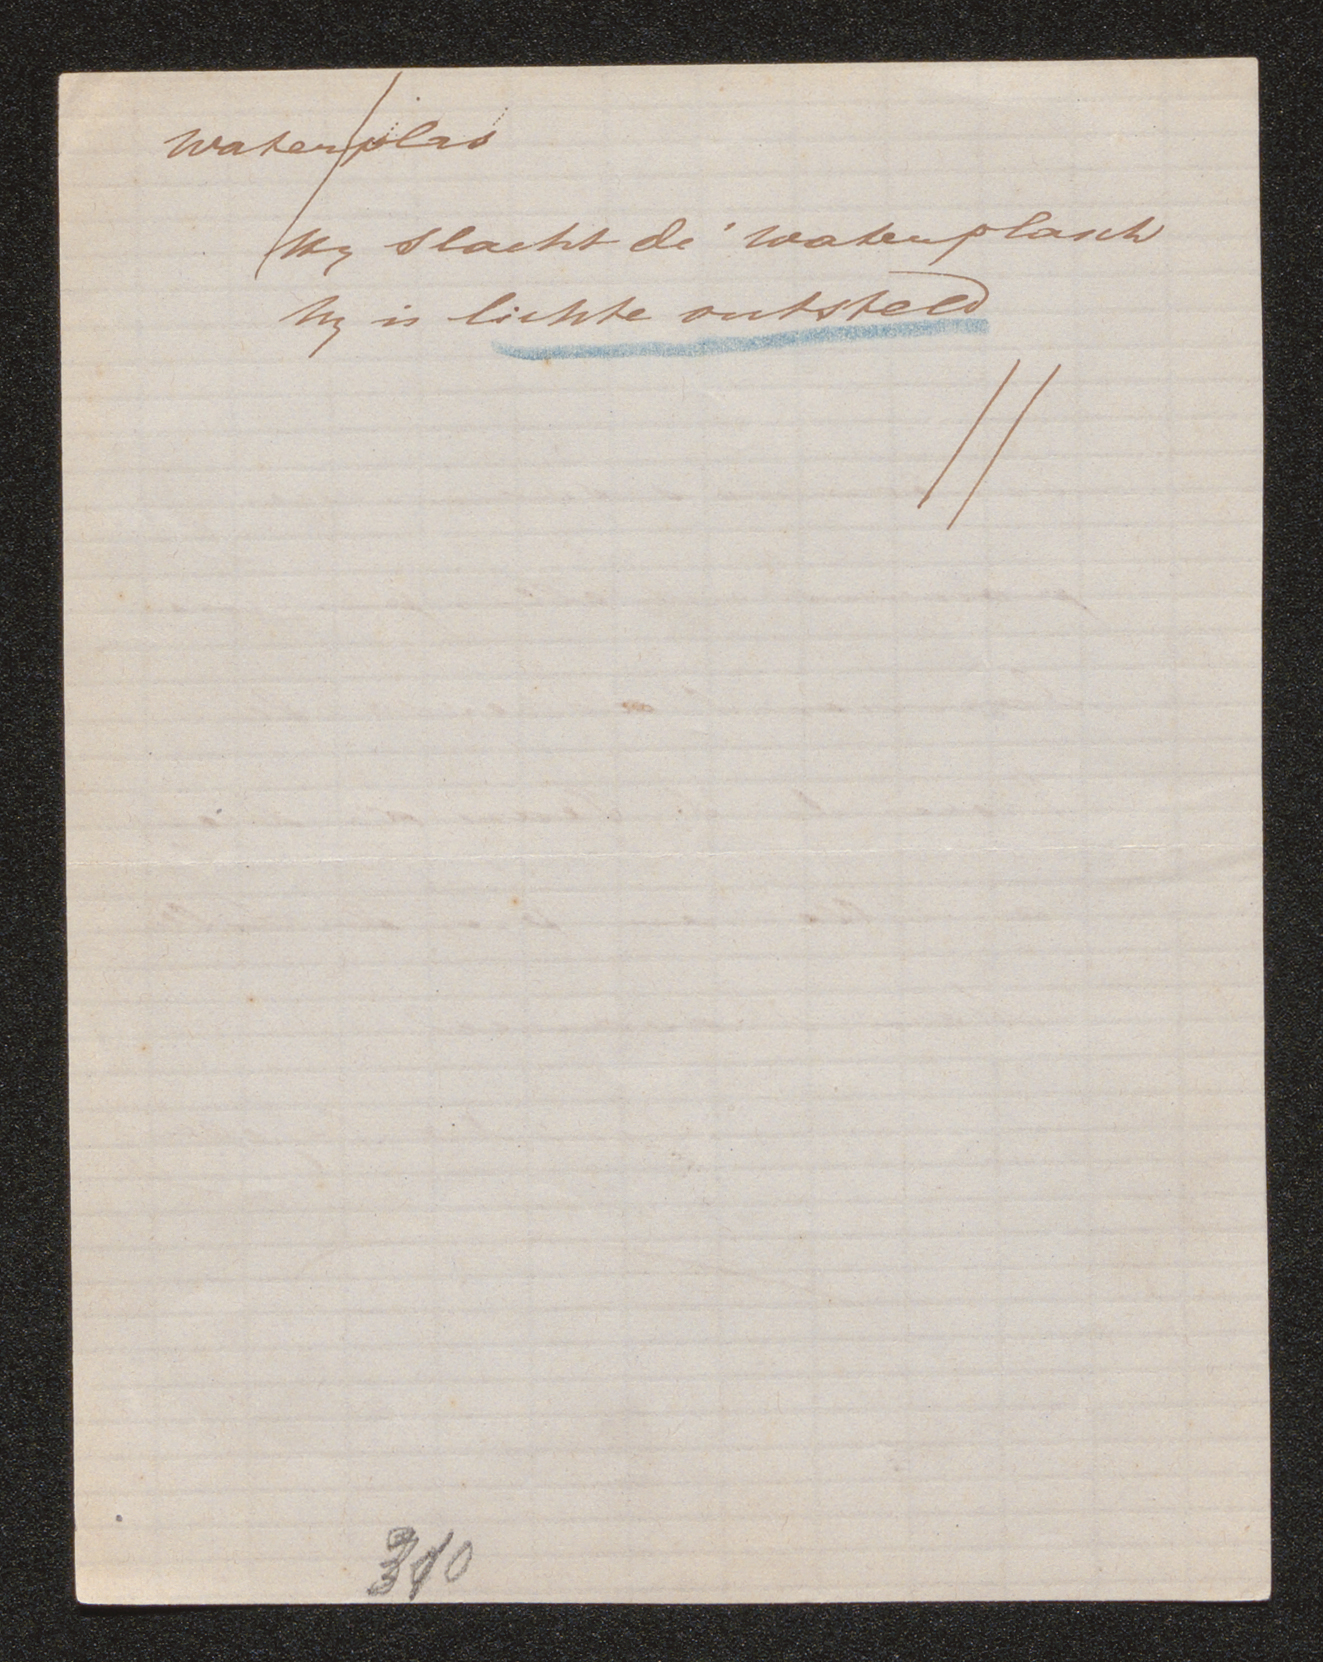 Waterplas
Hy slacht de' waterplasch
hy is lichte ontsteld
310